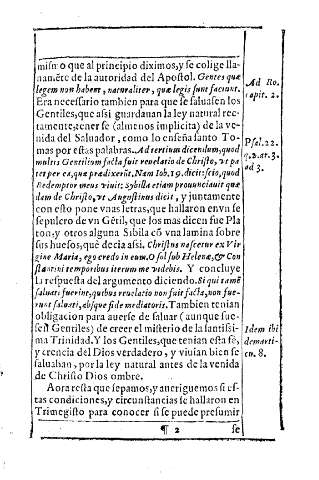 mismo que al principio diximos, y se colige lla-
namẽte de la autoridad del Apostol. Gentes quæ
legem non habent, naturaliter, quæ legis sunt faciunt.
Era necessario tambien para que se saluasen los
Gentiles, que assi guardauan la ley natural rec-
tamente, tener fe (almenos implicita) de la ve-
nida del Saluador, como lo enseña santo To-
mas por estas palabras. Ad tertium dicendum, quod
multis Gentilium facta fuit reuelatio de Christo, vt pa-
tet per ea, quæ prædixerũt. Nam Iob. 19. dicit: scio, quod
Redemptor meus viuit: Sybilla etiam pronunciauit quæ
dam de Christo, vt Augustinus dicit, y juntamente
con esto pone vnas letras, que hallaron en vn se
sepulcro de vn Gẽtil, que los mas dicen fue Pla
ton, y otros alguna Sibila cõ vna lamina sobre
sus huesos, quẽ decia assi. Christus nascetur ex Vir
gine Maria, ego credo in eum. O sol sub Helenæ, & Con
stantini temporibus iterum me videbis. Y concluye
la respuesta del argumento diciendo. Si qui tamẽ
saluati fuerint, quibus reuelatio non fuit facta, non fue-
runt saluati, absque fide mediatoris. Tambien tenian
obligacion para auerse de saluar (aunque fue-
sen Gentiles) de creer el misterio de la santissi
ma Trinidad. Y los Gentiles, que tenian esta fè,
y crencia del Dios verdadero, y viuian bien se
saluaban, por la ley natural antes de la venida
de Christo Dios ombre.
Aora resta que sepamos, y aueriguemos si es-
tas condiciones, y circunstancias se hallaron en
Trimegisto para conocer si se puede presumir
¶ 2 se
Ad Ro.
capit. 2.
Psal. 22.
q. 2. ar. 3.
ad 3.
Idem ibi
dem arti-
cu. 8.